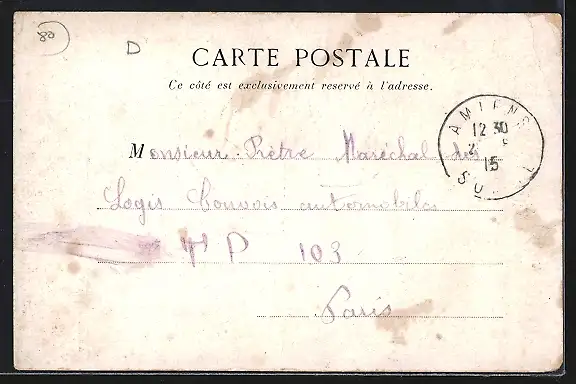 80
D
CARTE POSTALE
Ce côté est exclusivement reservé à l'adresse.
AMIENS
12 30
2
15
SU
Monsieur Prêtre Maréchal des
Logis Convois automobiles
P 103
Paris